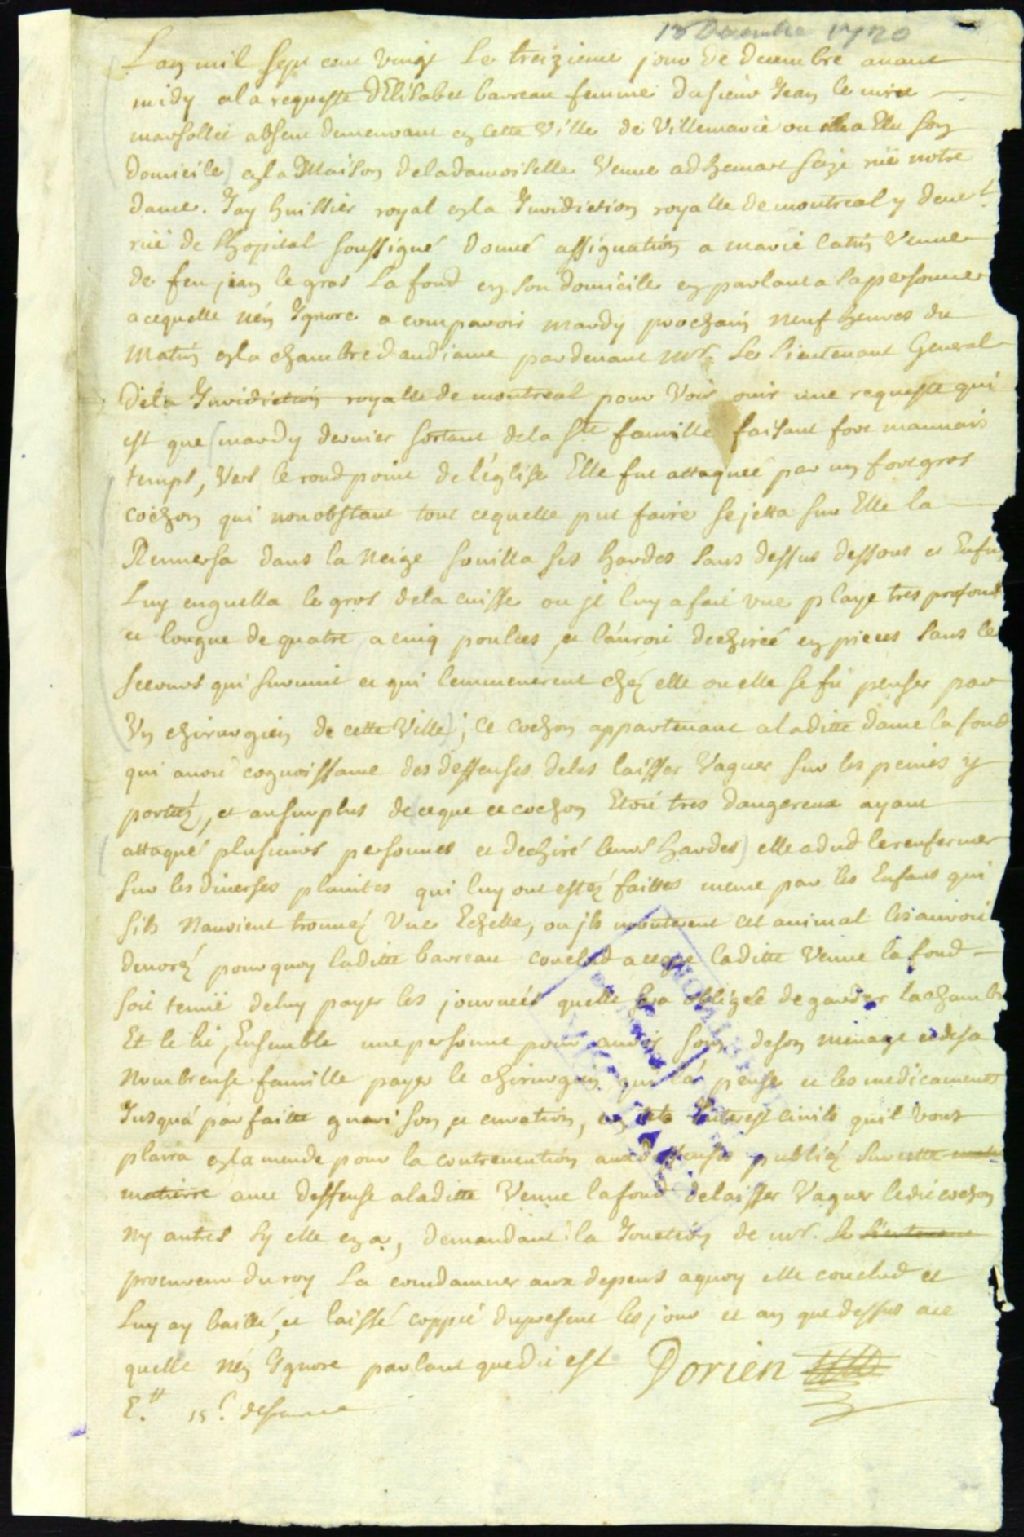 13 Decembre 1720
Lan mil sept cent vingt Le treizieme jour de decembre avant
midy ala requeste dElisabet barreau femme du sieur Jean le mire
marsollet absent demeurant en cette Ville de Villemarie ou Elle a Elu son
domicile en la Maison deladamoiselle Veuve adhemart size rüe notre
dame. Jay huissier royal en la Juridiction royalle de montreal y demt.
rüe de lhopital soussigné donné assignation a marie Catin Veuve
de feu jean le gros Lafond en son domicille en parlant a sa personne
acequelle nen Ignore a comparoir mardy prochain neuf heures du
Matin en la chambre daudiance pardevant mr. Le Lieutenant General
dela Juridiction royalle de montreal pour Voir ouir une requeste qui
est que mardy dernier sortant dela Ste famille faisant fort mauvais
temps, Vers le rondpoint de leglise Elle fut attaqueé par un fort gros
cochon qui nonobstant tout cequelle put faire se jetta sur Elle la
Renversa dans la neige souilla ses hardes sans dessus dessous et Enfin
Luy engulla le gros dela cuisse ou jl luy a fait une playe tres profond
et longue de quatre a cinq poulces, et lauroit dechireé en pieces sans le
secours qui survint et qui lemmenerent chez elle ou elle se fit penser par
Un chirurgien de cette Ville; Ce cochon appartenant aladitte dame lafond
qui avoit cognoissance des deffenses deles laisser Vaguer sur les peines y
porteéz, et au surplus de ceque ce cochon Etoit tres dangereux ayant
attaqué plusieurs personnes et dechiré leurs hardes elle a dud le renfermer
sur les diverses plaintes qui luy ont estéz faittes meme par les Enfans qui
sils navoient trouvéz Une Echelle, ou jls monterent cet animal les auroit
devoréz pourquoy laditte barreau conclud aceque laditte Veuve lafond
soit tenüe deluy payer les journeés quelle sera obligeé de garder lachambre
Et le lit, Ensemble une personne pour avoir soin deson menage et desa
Nombreuse famille payer le chirurgien qui la pense et les medicaments
Jusquá parfaitte guerison et curation, Interest civils quil vous
plaira en lamende pour la contravention aux deffenses publiéz sur cette
matierre avec deffense aladitte Veuve lafond delaisser Vaguer ledit cochon
Ny autres sy elle en a, demandant la Jonction de mr. le Lieutenant
procureur du roy La condamner aux depens aquoy elle conclud et
Luy ay baillé, et laissé coppie du present les jour et an que dessus ace
quelle nen Ignore parlant que dit est Dorien
15 s.